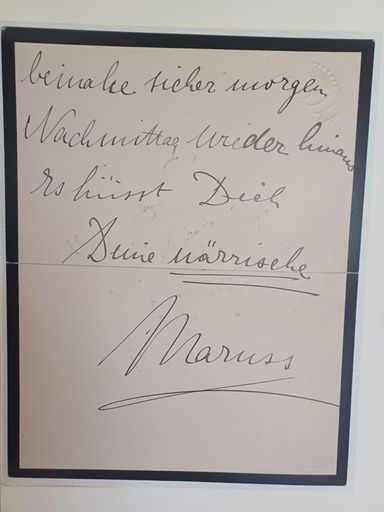 beinahe sicher morgen
Nachmittag wieder hinaus
Es küsst Dich
Deine närrische
Maruss